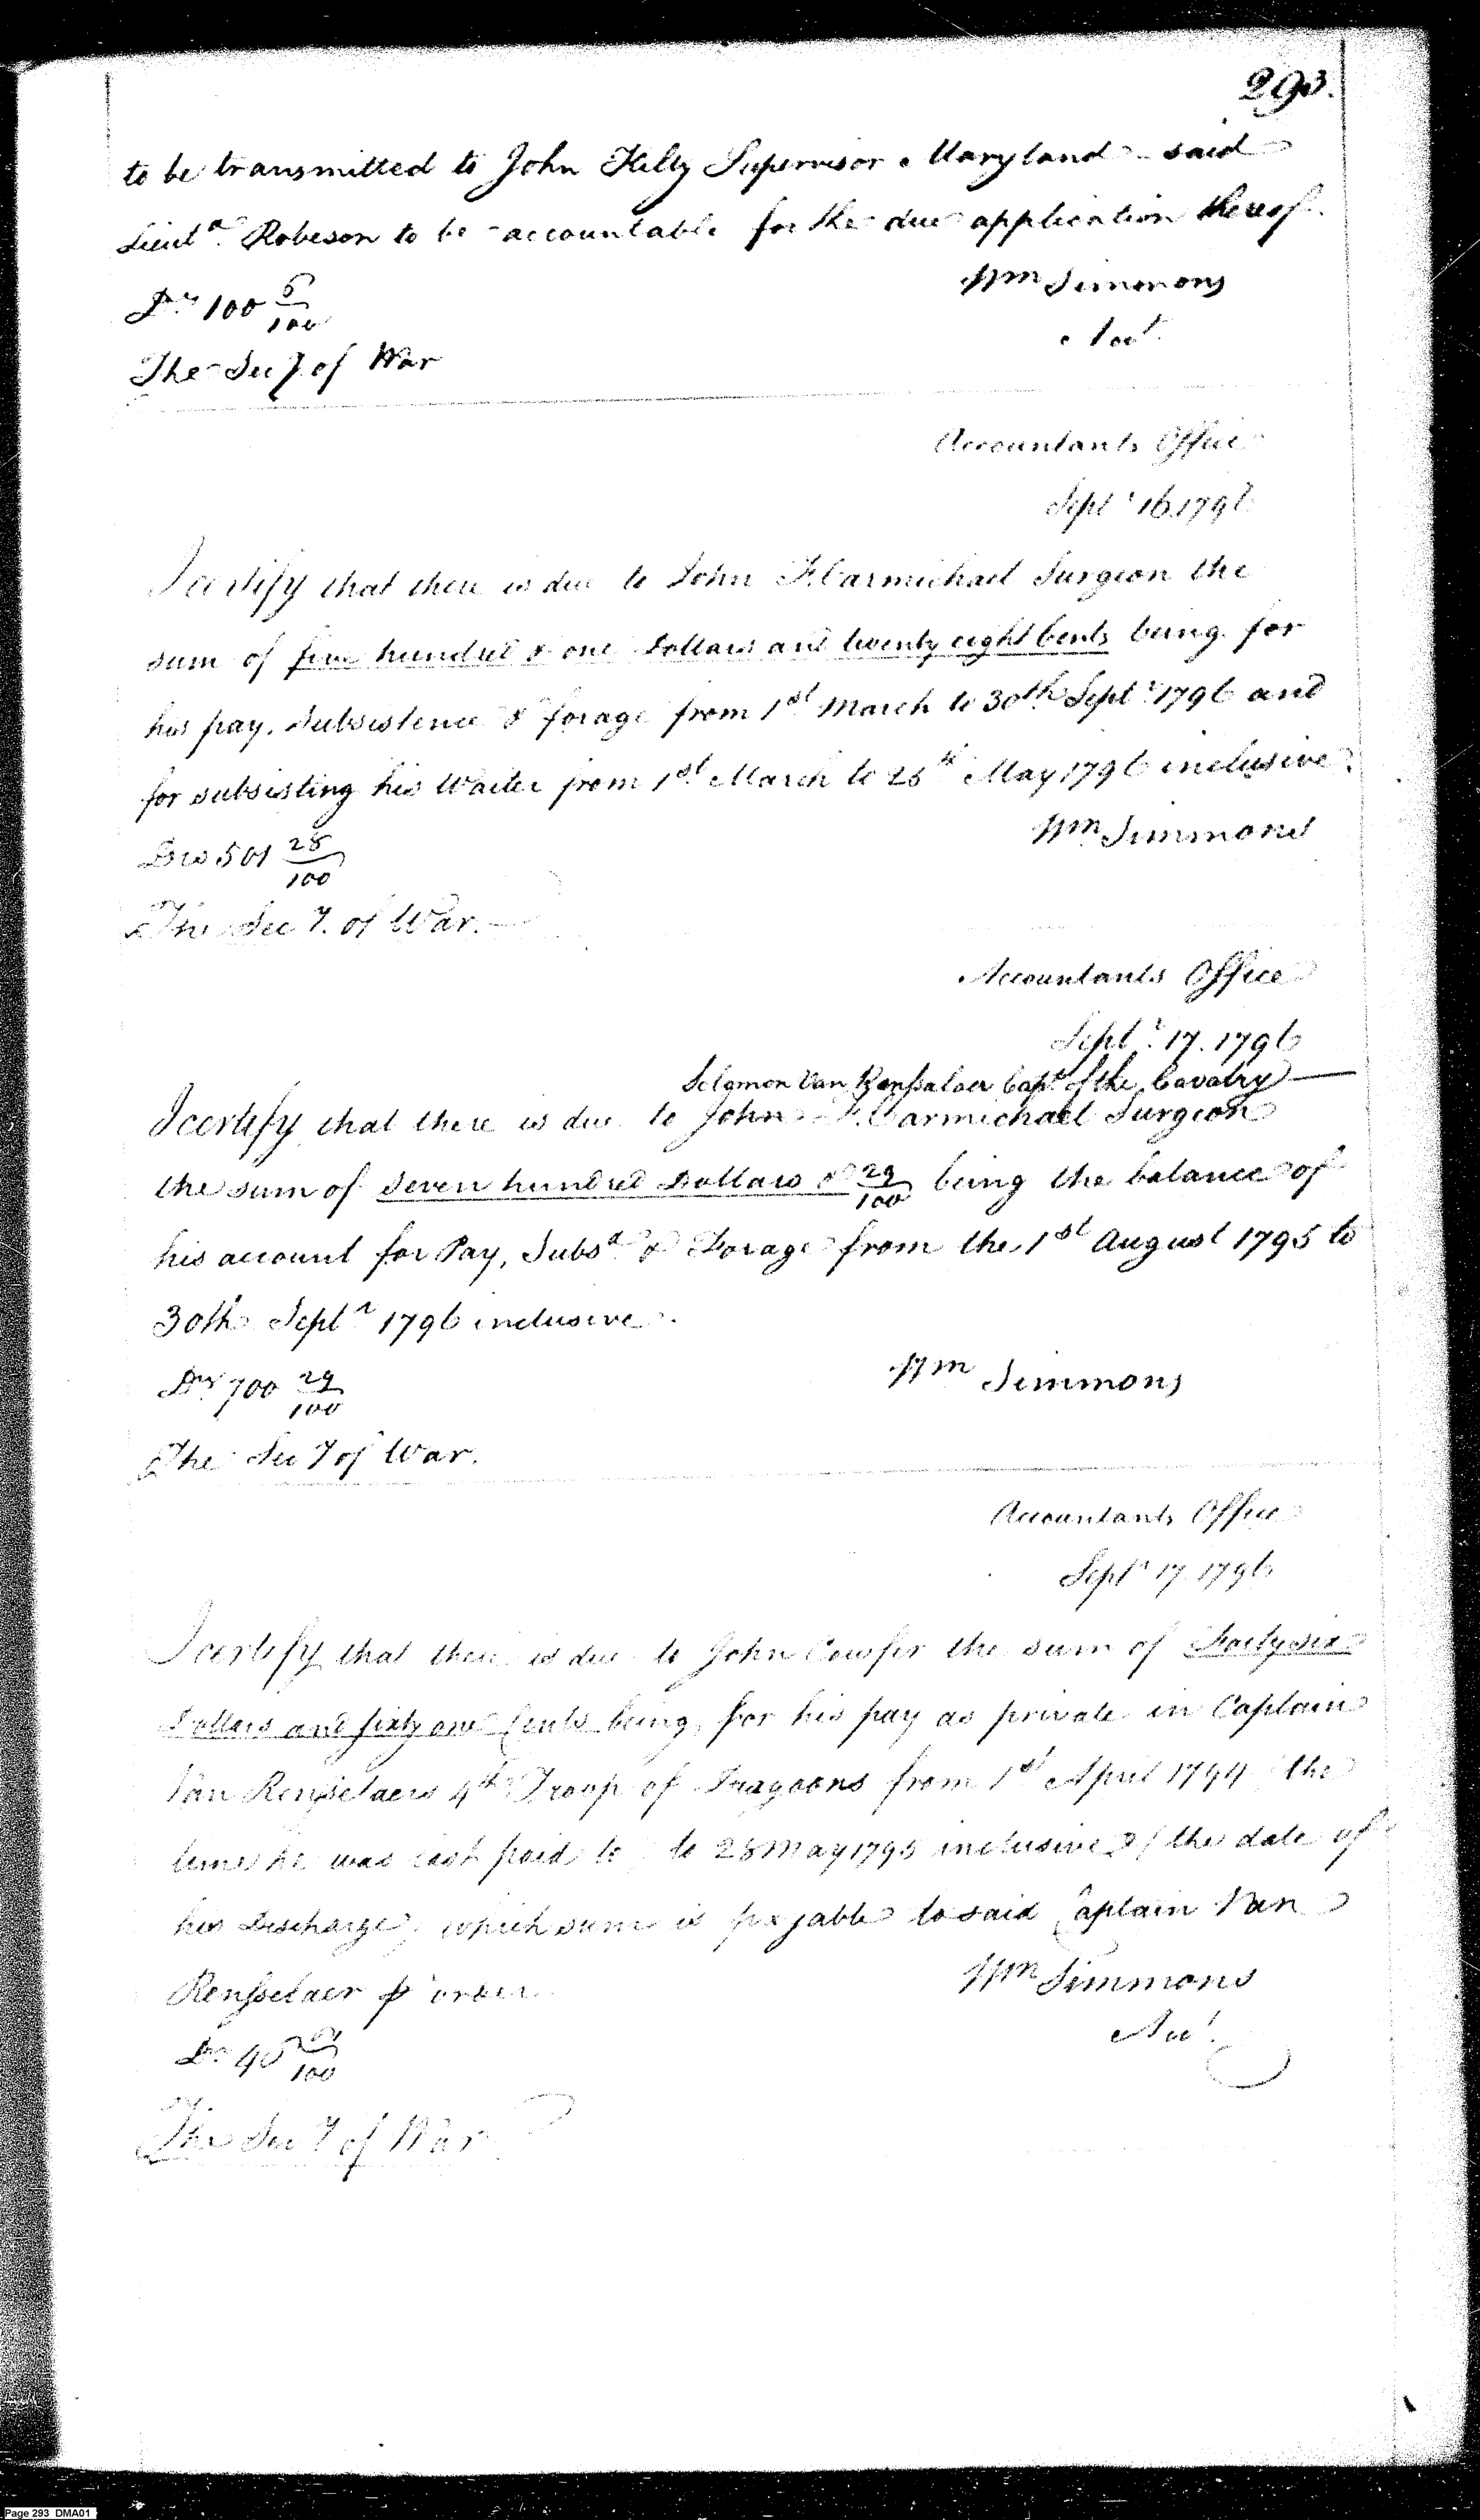 293.
to be transmitted to John Kilty Supervisor Maryland said
Lieut.ᵗ Robeson to be accountable for the due application thereof.
Dˢ 100 5/100
Wm Simmons
Acct.
The Secʸ of War
Accountants Office
Septʳ 16 1796
I certify that there is due to John F. Carmichael Surgeon the
sum of five hundred & one Dollars and twenty eight Cents being for
his pay, Subsistence & forage from 1ˢᵗ March to 30th Septʳ 1796 and
for subsisting his Waiter from 1ˢᵗ March to 25ᵗʰ May 1796 inclusive.
Wm Simmons
Drs 501 28/100
The Secʸ. of War.
Accountants Office
Septʳ. 17. 1796
Solomon Van Rensalaer Capᵗ of the Cavalry
I certify that there is due to John F. Carmichael Surgeon
the sum of Seven hundred Dollars & 29/100 being the balance of
his account for Pay, Subsᵉ & Forage from the 1ˢᵗ August 1795 to
30th Septʳ 1796 inclusive.
Wm Simmons
Dˢ 700 29/100
The Secʸ of War.
Accountants Office
Septʳ 17 1796
I certify that there is due to John Cowfer the sum of Forty six
Dollars and sixty one Cents being for his pay as private in Captain
Van Rensselaers 4ᵗʰ Troop of Dragoons from 1ˢᵗ April 1794 the
time he was last paid to to 28 May 1795 inclusive the date of
his Discharge, which sum is payable to said Captain Van
Rensselaer order
Wm Simmons
Acᵗ.
Dˢ 46 /100
The Secʸ of War
Page 293 DMA01